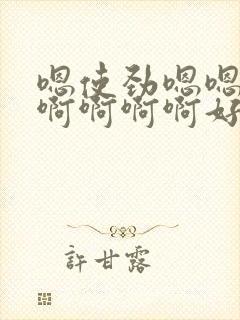 嗯使劲嗯嗯
啊啊啊啊好
許甘露